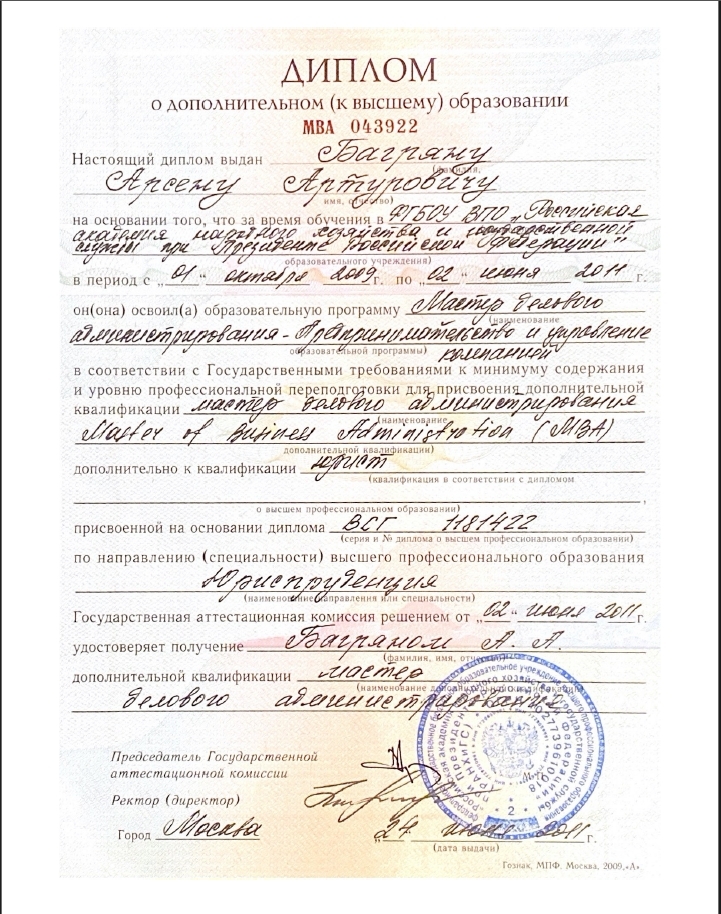 ДИПЛОМ
о дополнительном (к высшему) образовании
МВА 043922
Настоящий диплом выдан Багряну
(фамилия,
Арсену Артуровичу
имя, отчество)
на основании того, что за время обучения в ФГБОУ ВПО „Российская
академия народного хозяйства и государственной
службы при Президенте Российской Федерации"
образовательного учреждения)
в период с „01“ октября 2009 г. по „02“ июня 2011 г.
он(она) освоил(а) образовательную программу Мастер делового
(наименование
администрирования - Предпринимательство и управление
образовательной программы) компанией
в соответствии с Государственными требованиями к минимуму содержания
и уровню профессиональной переподготовки для присвоения дополнительной
квалификации мастер делового администрирования
(наименование
Master of Business Administration (MBA)
дополнительной квалификации)
дополнительно к квалификации юрист
(квалификация в соответствии с дипломом
,
о высшем профессиональном образовании)
присвоенной на основании диплома ВСГ 1181422
(серия и № диплома о высшем профессиональном образовании)
по направлению (специальности) высшего профессионального образования
Юриспруденция
(наименование направления или специальности)
Государственная аттестационная комиссия решением от „02“ июня 2011 г.
удостоверяет получение Багряном А. А.
(фамилия, имя, отчество)
дополнительной квалификации мастер
(наименование дополнительной квалификации)
делового администрирования
Председатель Государственной
аттестационной комиссии
Ректор (директор)
Город Москва „24 июня 2011 г.
(дата выдачи)
Гознак, МПФ, Москва, 2009, «А».